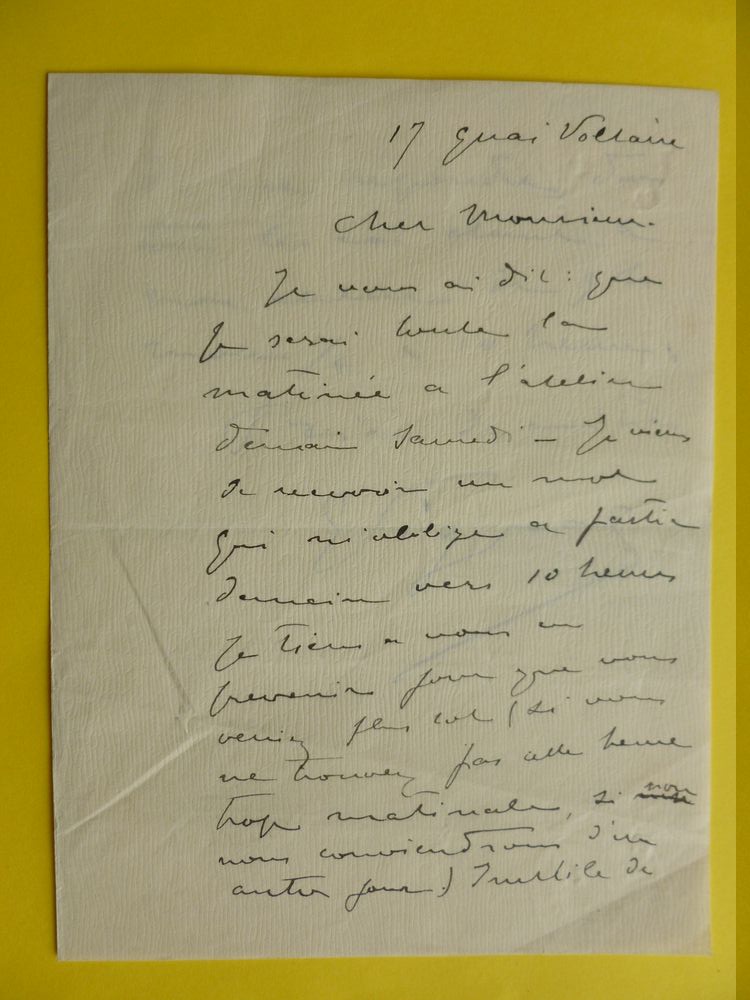 17 quai Voltaire
Cher Monsieur.
Je vous ai dit : que
Je serai toute la
matinée a l'atelier
demain Samedi – Je viens
de recevoir un mot
qui m'oblige a partir
demain vers 10 heures
Je tiens a vous en
prevenir pour que vous
veniez plus tot (si vous
ne trouvez pas cette heure
trop matinale, si non
nous conviendrons d'un
autre jour.) Inutile de